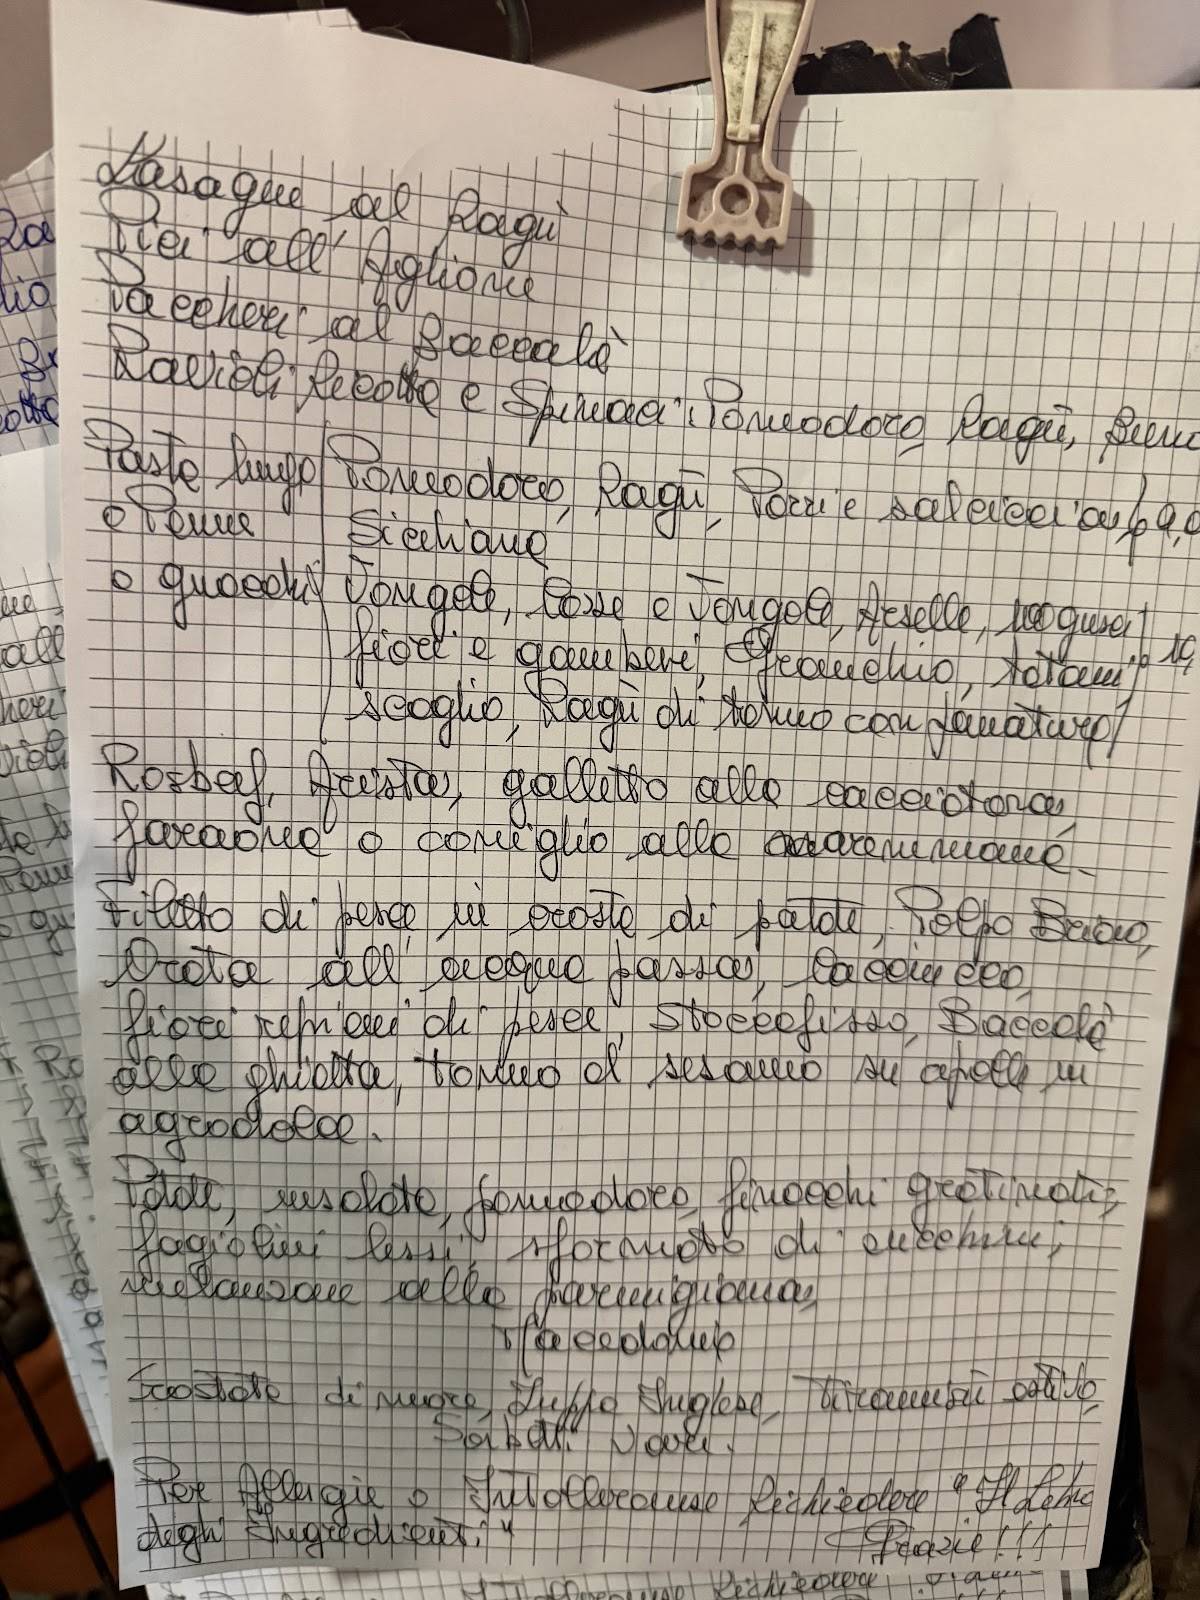 Lasagne al Ragù
Pici all'Aglione
Paccheri al Baccalà
Ravioli Ricotta e Spinaci: Pomodoro, Ragù, Burro
Pasta lunga Pomodoro, Ragù, Porri e salsiccia
o Penne Siciliana
o gnocchi Vongole, Cozze e Vongole, Arselle,
fiori e gamberi, Granchio, totani,
scoglio, Ragù di tonno con
Rosbef, Arista, galletto alla cacciatora,
faraona o coniglio alla maremmana.
Filetto di pesce in crosta di patate, Polpo
Orata all'acqua pazza, Cacciucco,
fiori ripieni di pesce, Stoccafisso, Baccalà
alla ghiotta, tonno al sesamo su cipolla in
agrodolce.
Patate, insalata, pomodoro, finocchi gratinati,
fagiolini lessi, sformato di zucchini,
melanzane alla parmigiana,
Macedonia
Crostata di more, Zuppa Inglese, Tiramisù estivo,
Sorbetti Vari.
Per Allergie o Intolleranze Richiedere "Il Libro
degli Ingredienti"
Grazie!!!